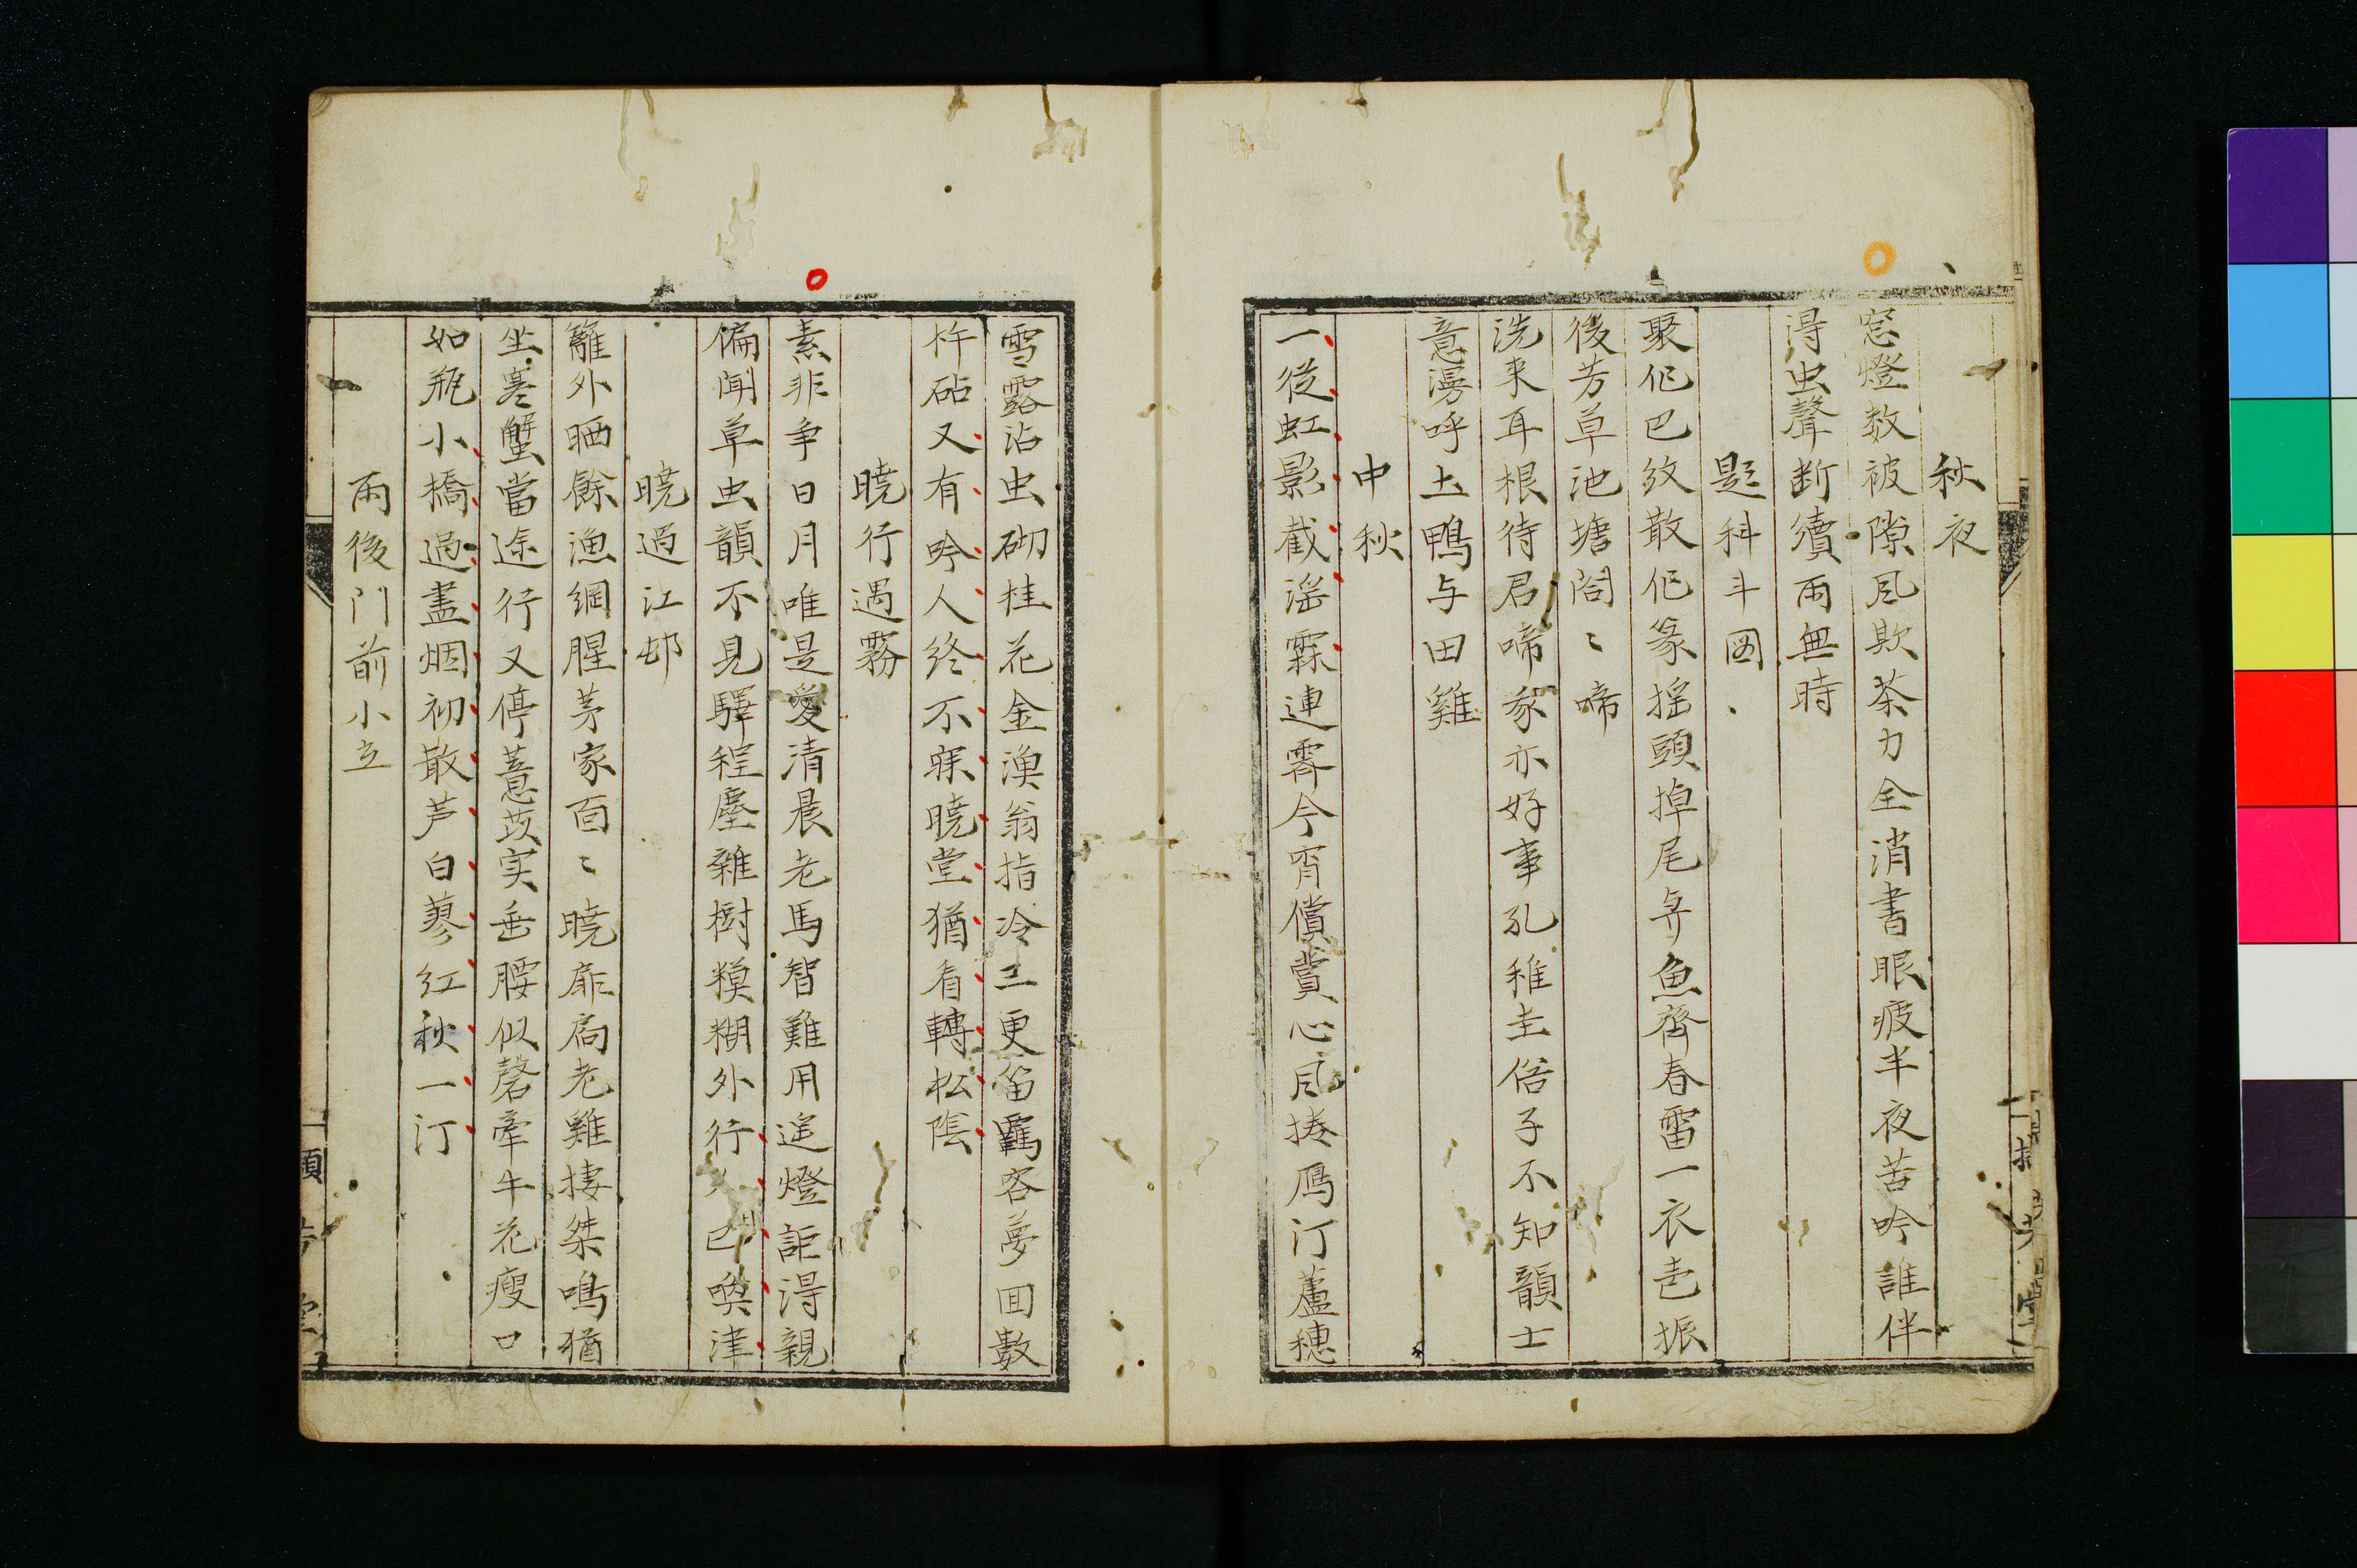 秋夜
窓燈数被隙风欺茶力全消書眼疲半夜苦吟誰伴
淂虫聲断續雨無時
題科斗図
聚作巴紋散作篆揺頭掉尾與魚齊春雷一衣壱振
後芳草池塘閤〻啼
洗来耳根待君啼豕亦好事孔稚圭俗子不知韻士
意漫呼土鴨与田雞
中秋
一従虹影截滛霖連霽今宵償賞心风捲鴈汀蘆穗
雪露沾虫砌桂花金漁翁指冷三更笛羈客夢囬數
杵砧又有吟人終不寐暁堂猶看轉松陰
暁行遇霧
素非争日月唯是愛清晨老馬智難用遥燈詎淂親
偏闻草虫韻不見驛程塵雜樹糢糊外行人已喚津
暁過江邨
籬外晒餘漁網腥茅家面〻暁扉扃老雞棲桀鳴猶
坐寒蟹當途行又停薏苡实垂腰似磬牽牛花瘦口
如瓶小橋過盡烟初散芦白蓼红秋一汀
雨後门前小立